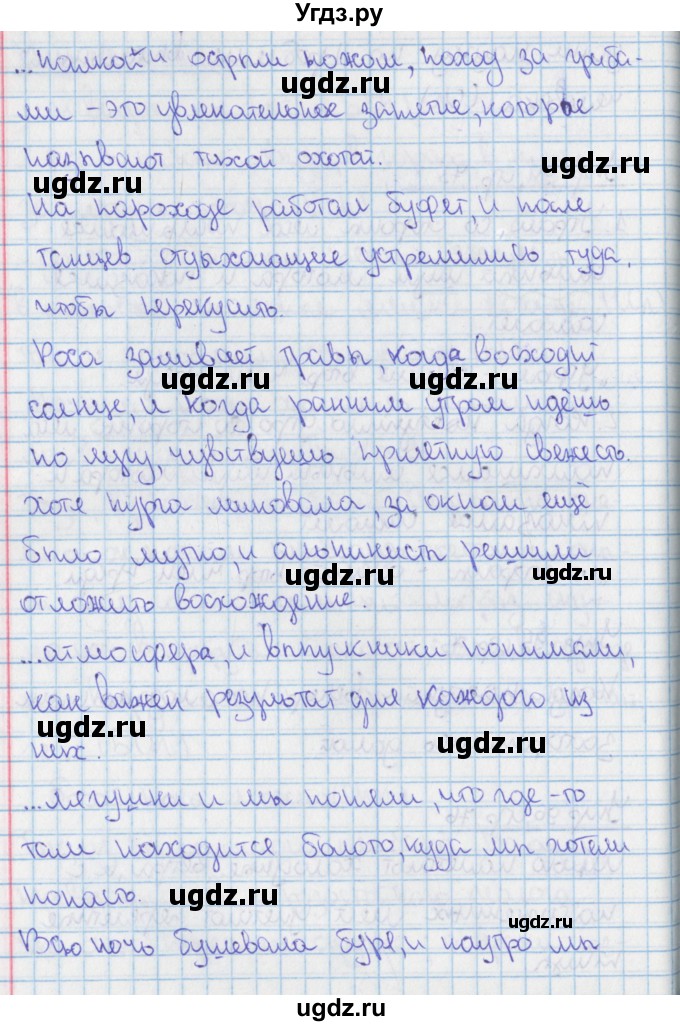 Угдз.ру
...палкой и острым ножом, поход за гриба-
ми - это увлекательное занятие, которое
называют тихой охотой.
На пароходе работал буфет, и после
танцев отдыхающие устремились туда,
чтобы перекусить.
Роса заливает травы, когда восходит
солнце, и когда ранним утром идёшь
по лугу, чувствуешь приятную свежесть.
Хотя пурга миновала, за окном ещё
было мутно, и альпинисты решили
отложить восхождение.
...атмосфера, и выпускники понимали,
как важен результат для каждого из
них.
...лягушки и мы поняли, что где-то
там находится болото, куда мы хотели
попасть.
Всю ночь бушевала буря, и наутро мы
ugdz.ru
ugdz.ru
ugdz.ru
ugdz.ru
ugdz.ru
ugdz.ru
ugdz.ru
ugdz.ru
ugdz.ru
ugdz.ru
ugdz.ru
ugdz.ru
ugdz.ru